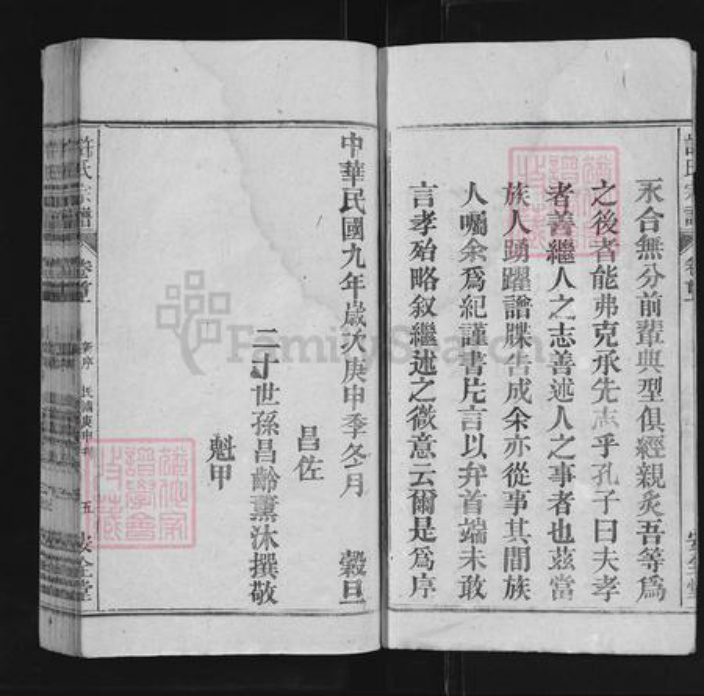 永合無分前輩典型俱經親炙吾等爲
之後者能弗克承先志乎孔子曰夫孝
者善繼人之志善述人之事者也茲當
族人踴躍譜牒告成余亦從事其間族
人囑余爲紀謹書片言以弁首端未敢
言孝殆略叙繼述之微意云爾是爲序
中華民國九年歲次庚申季冬月 穀旦
昌佐
二十世孫昌齡薰沐撰敬
魁甲
許氏宗譜 卷首 新序 民國庚申 五 安全堂
FamilySearch